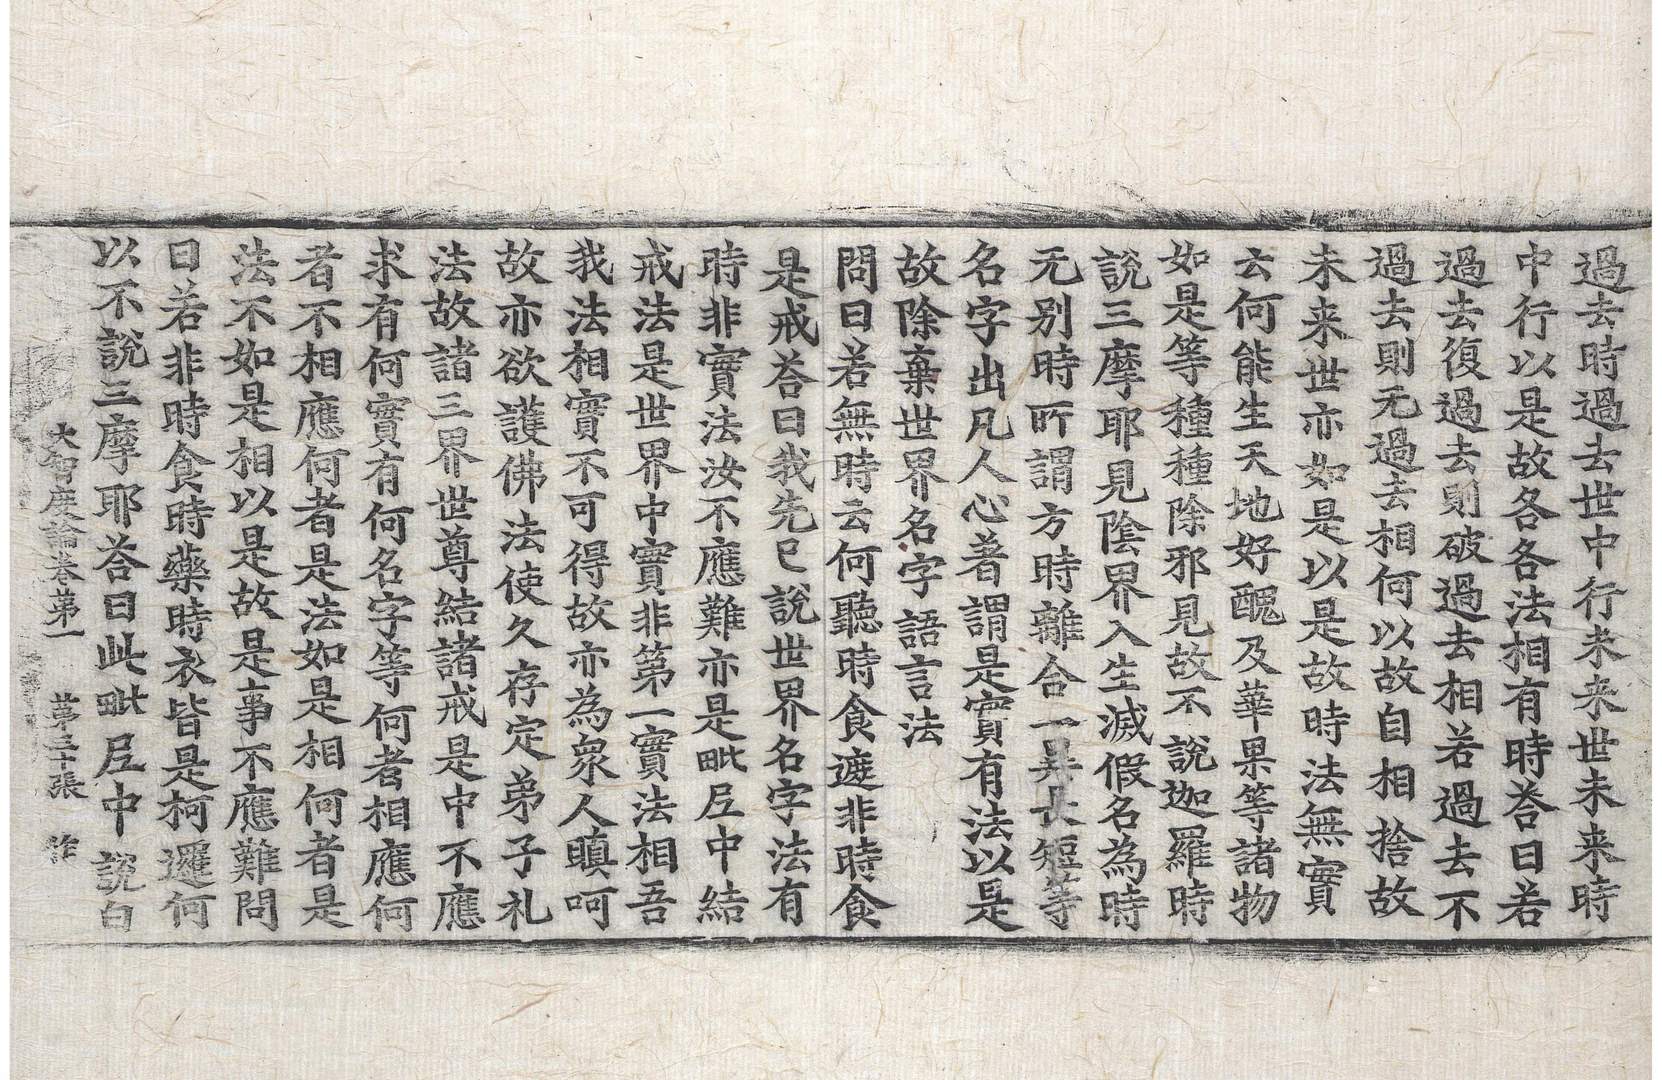 過去時過去世中行未来世未来時
中行以是故各各法相有時荅曰若
過去復過去則破過去相若過去不
過去則无過去相何以故自相捨故
未来世亦如是以是故時法無實
云何能生天地好醜及華果等諸物
如是等種種除邪見故不說迦羅時
說三摩耶見陰界入生滅假名為時
无別時所謂方時離合一異長短等
名字出凡人心著謂是實有法以是
故除棄世界名字語言法
問曰若無時云何聽時食遮非時食
是戒荅曰我先已說世界名字法有
時非實法汝不應難亦是毗尼中結
戒法是世界中實非第一實法相吾
我法相實不可得故亦為衆人瞋呵
故亦欲護佛法使久存定弟子礼
法故諸三界世尊結諸戒是中不應
求有何實有何名字等何者相應何
者不相應何者是法如是相何者是
法不如是相以是故是事不應難問
曰若非時食時藥時衣皆是柯邏何
以不說三摩耶荅曰此毗尼中說白
大智度論卷苐一 苐三十張 作